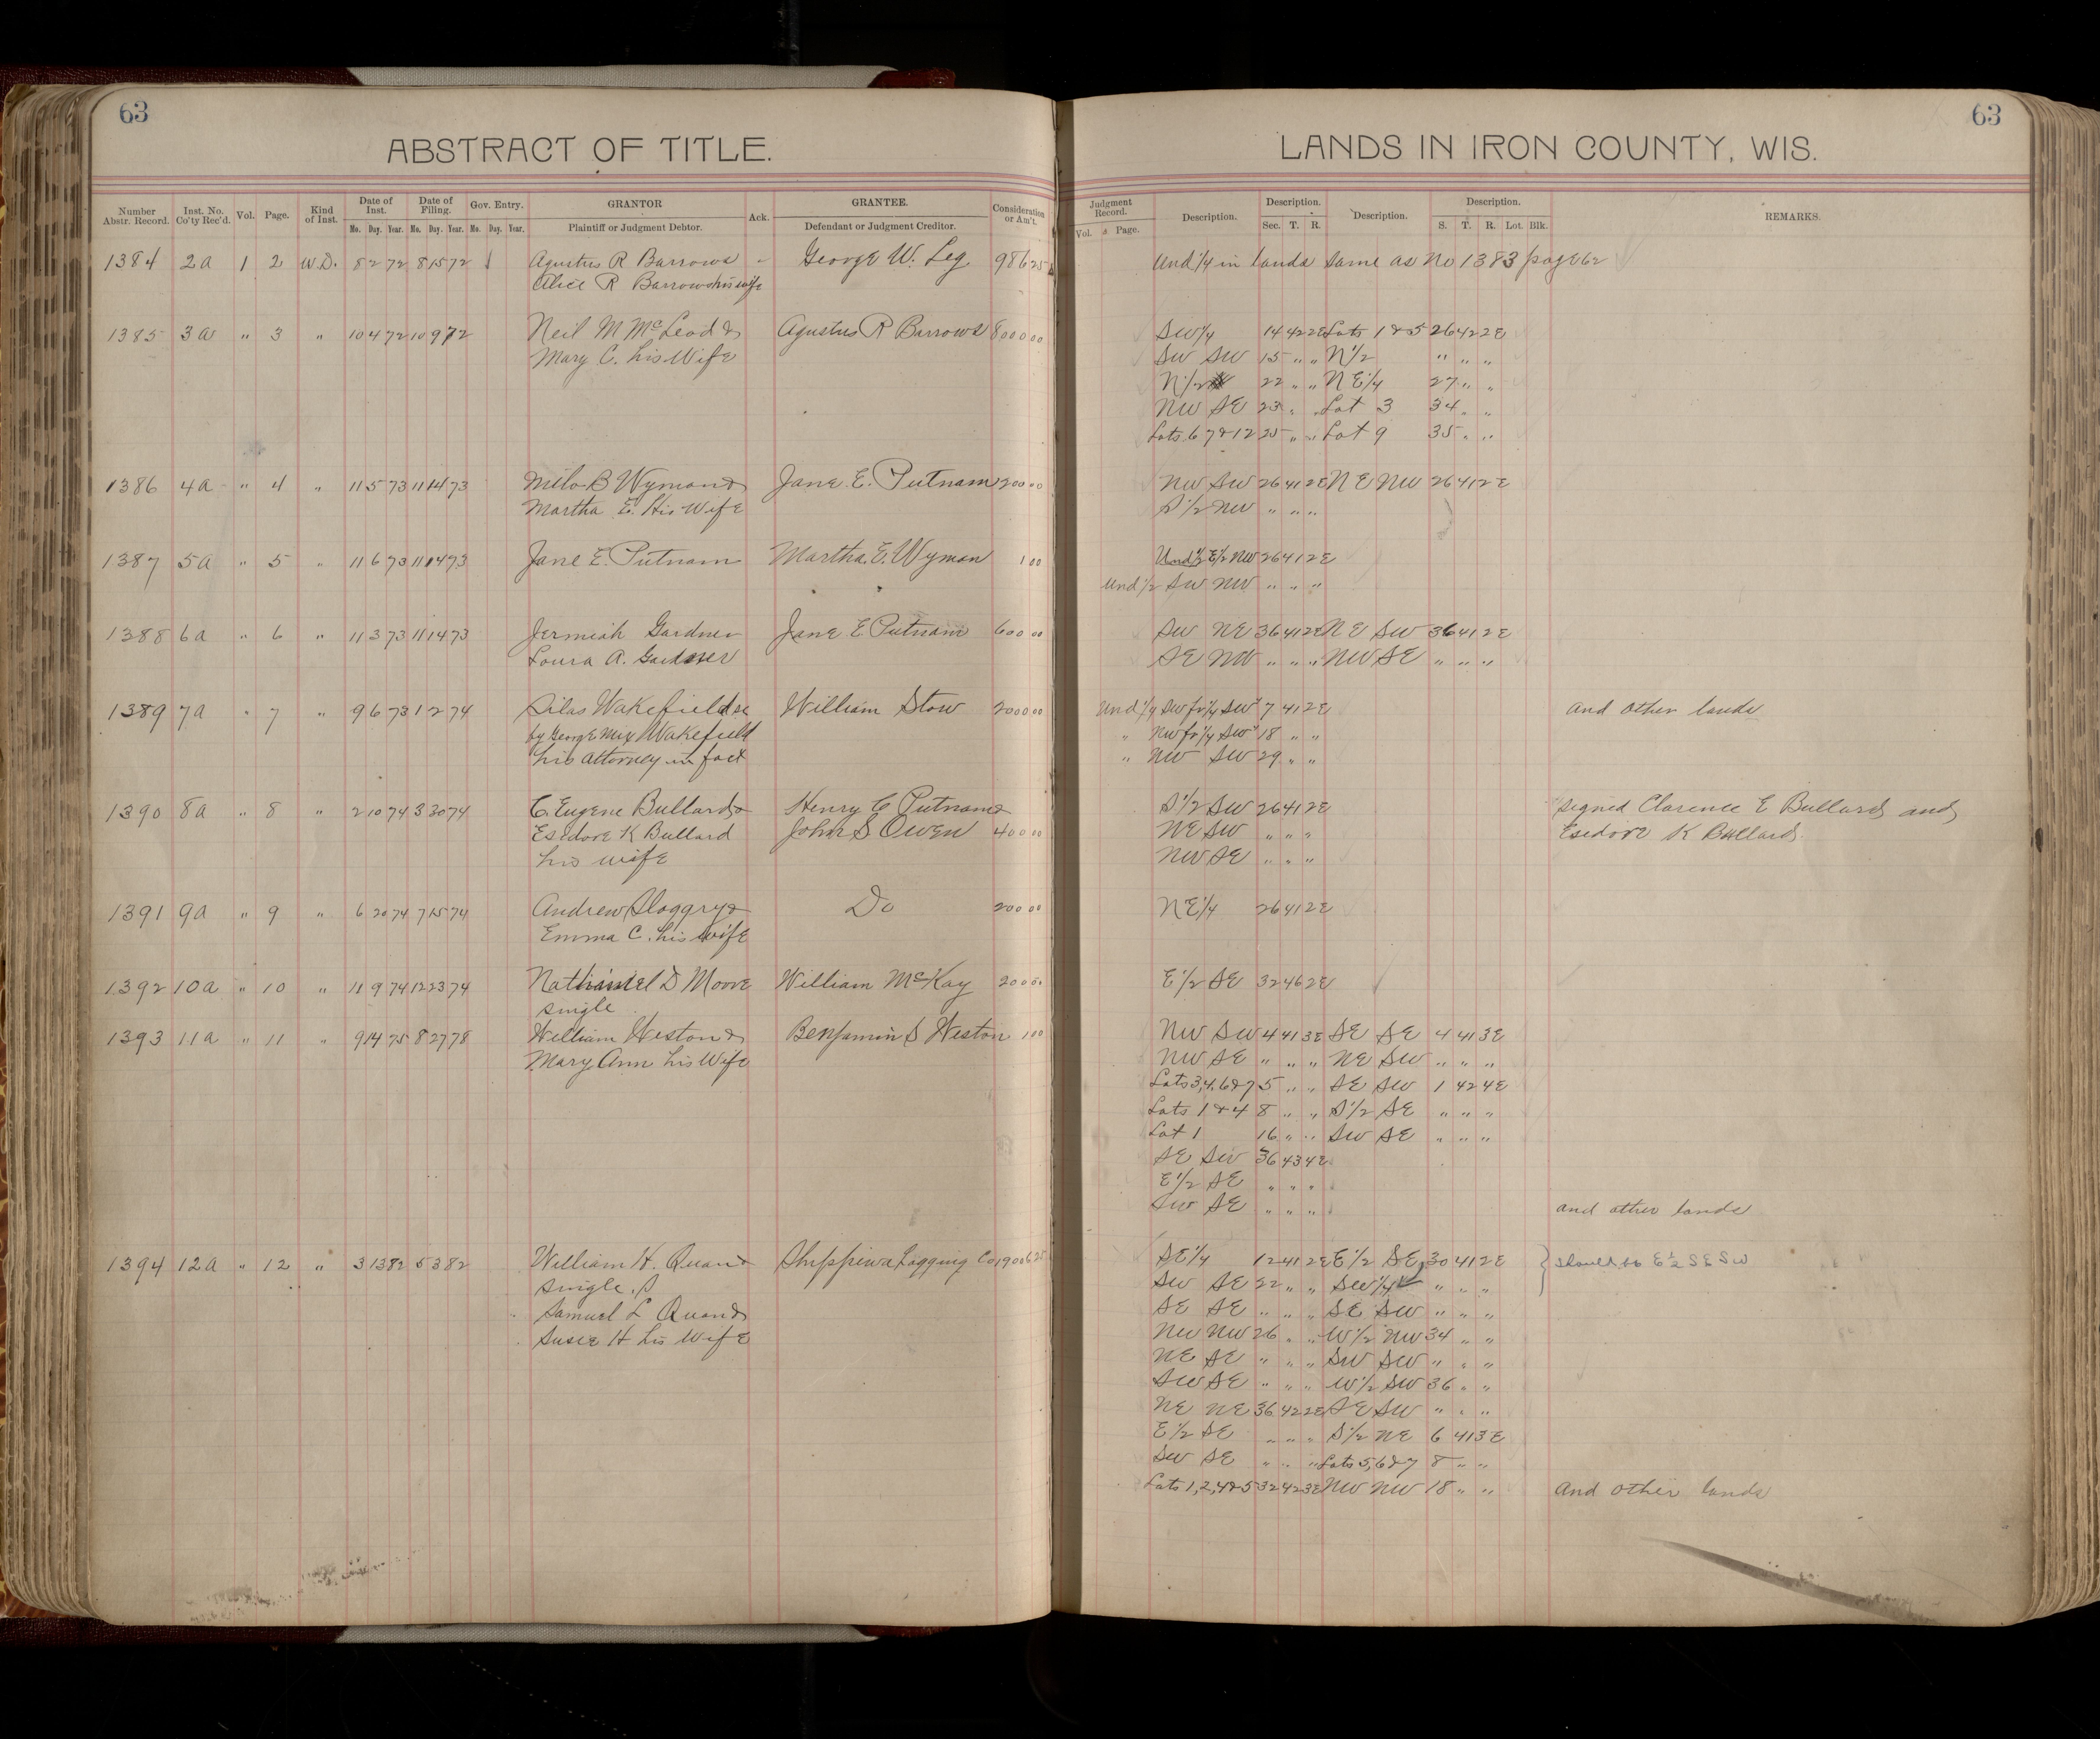 63
ABSTRACT OF TITLE.
Number Abstr. Record. Inst. No. Co'ty Rec'd. Vol. Page. Kind of Inst. Date of Inst. Date of Filing. Gov. Entry. GRANTOR Ack. GRANTEE. Consideration or Am't.
Mo. Day. Year. Mo. Day. Year. Mo. Day. Year. Plaintiff or Judgment Debtor. Defendant or Judgment Creditor.
1384 2a 1 2 W.D. 8 2 72 8 15 72 Agustus R Barrows George W. Leg 986 25
Alice R Barrows his wife
1385 3a " 3 " 10 4 72 10 9 72 Neil M McLeod & Agustus R Barrows 8000 00
Mary C. his Wife
1386 4a " 4 " 11 5 73 11 14 73 Milo B Wyman & Jane E. Putnam 200 00
Martha E. His Wife
1387 5a " 5 " 11 6 73 11 14 73 Jane E. Putnam Martha E. Wyman 1 00
1388 6a " 6 " 11 3 73 11 14 73 Jermiah Gardner Jane E Putnam 600 00
Loura A. Gardner
1389 7a " 7 " 9 6 73 1 2 74 Silas Wakefield William Stow 2000 00
by George Wakefield
his attorney in fact
1390 8a " 8 " 2 10 74 3 30 74 C. Eugene Bullard & Henry C Putnam &
Esedore K Bullard John S Owen 400 00
his wife
1391 9a " 9 " 6 20 74 7 15 74 Andrew Sloggry & Do 200 00
Emma C. his Wife
1392 10a " 10 " 11 9 74 12 23 74 Nathaniel D Moore William McKay 200 00
single
1393 11a " 11 " 9 14 75 8 27 78 William Weston & Benjamin S Weston 1 00
Mary Ann his Wife
1394 12a " 12 " 3 13 82 5 3 82 William H. Quan Logging Co 19006 25
single
Samuel L Quan &
Susie H his Wife
63
LANDS IN IRON COUNTY, WIS.
Judgment Record. Description. Description. Description. Description. REMARKS.
Vol. & Page. Sec. T. R. S. T. R. Lot. Blk.
Und 1/4 in lands same as No 1383 page 62
SW 1/4 14 42 2E Lots 1 & 5 26 42 2E
SW SW 15 " " N 1/2 " " "
N 1/2 22 " " NE 1/4 27 " "
NW SE 23 " " Lot 3 34 " "
Lots 6 7 & 12 25 " " Lot 9 35 " "
NW SW 26 41 2E NE NW 26 41 2E
S 1/2 NW " " "
Und 1/2 E 1/2 NW 26 41 2E
Und 1/2 SW NW " " "
SW NE 36 41 2E NE SW 36 41 2E
SE NW " " " NW SE " " "
Und 1/4 SW fr 1/4 SW 7 41 2E and other lands
" NW fr 1/4 SW 18 " "
" NW SW 29 " "
S 1/2 SW 26 41 2E signed Clarence E Bullard and
NE SW " " " Esedore K Bullard
NW SE " " "
NE 1/4 26 41 2E
E 1/2 SE 32 46 2E
NW SW 4 41 3E SE SE 4 41 3E
NW SE " " " NE SW " " "
Lots 3,4,6 & 7 5 " " SE SW 1 42 4E
Lots 1 & 4 8 " " S 1/2 SE " " "
Lot 1 16 " " SW SE " " "
SE SW 36 43 4E
E 1/2 SE " " "
SW SE " " " and other lands
SE 1/4 12 41 2E E 1/2 SE 30 41 2E should be E 1/2 SE SW
SW SE 22 " " SW 1/4 " " "
SE SE " " " SE SW " " "
NW NW 26 " " W 1/2 NW 34 " "
NE SE " " " SW SW " " "
SW SE " " " W 1/2 SW 36 " "
NE NE 36 42 2E SE SW " " "
E 1/2 SE " " " S 1/2 NE 6 41 3E
SW SE " " " Lots 5,6 & 7 8 " "
Lots 1,2,4 & 5 32 42 3E NW NW 18 " " and other lands